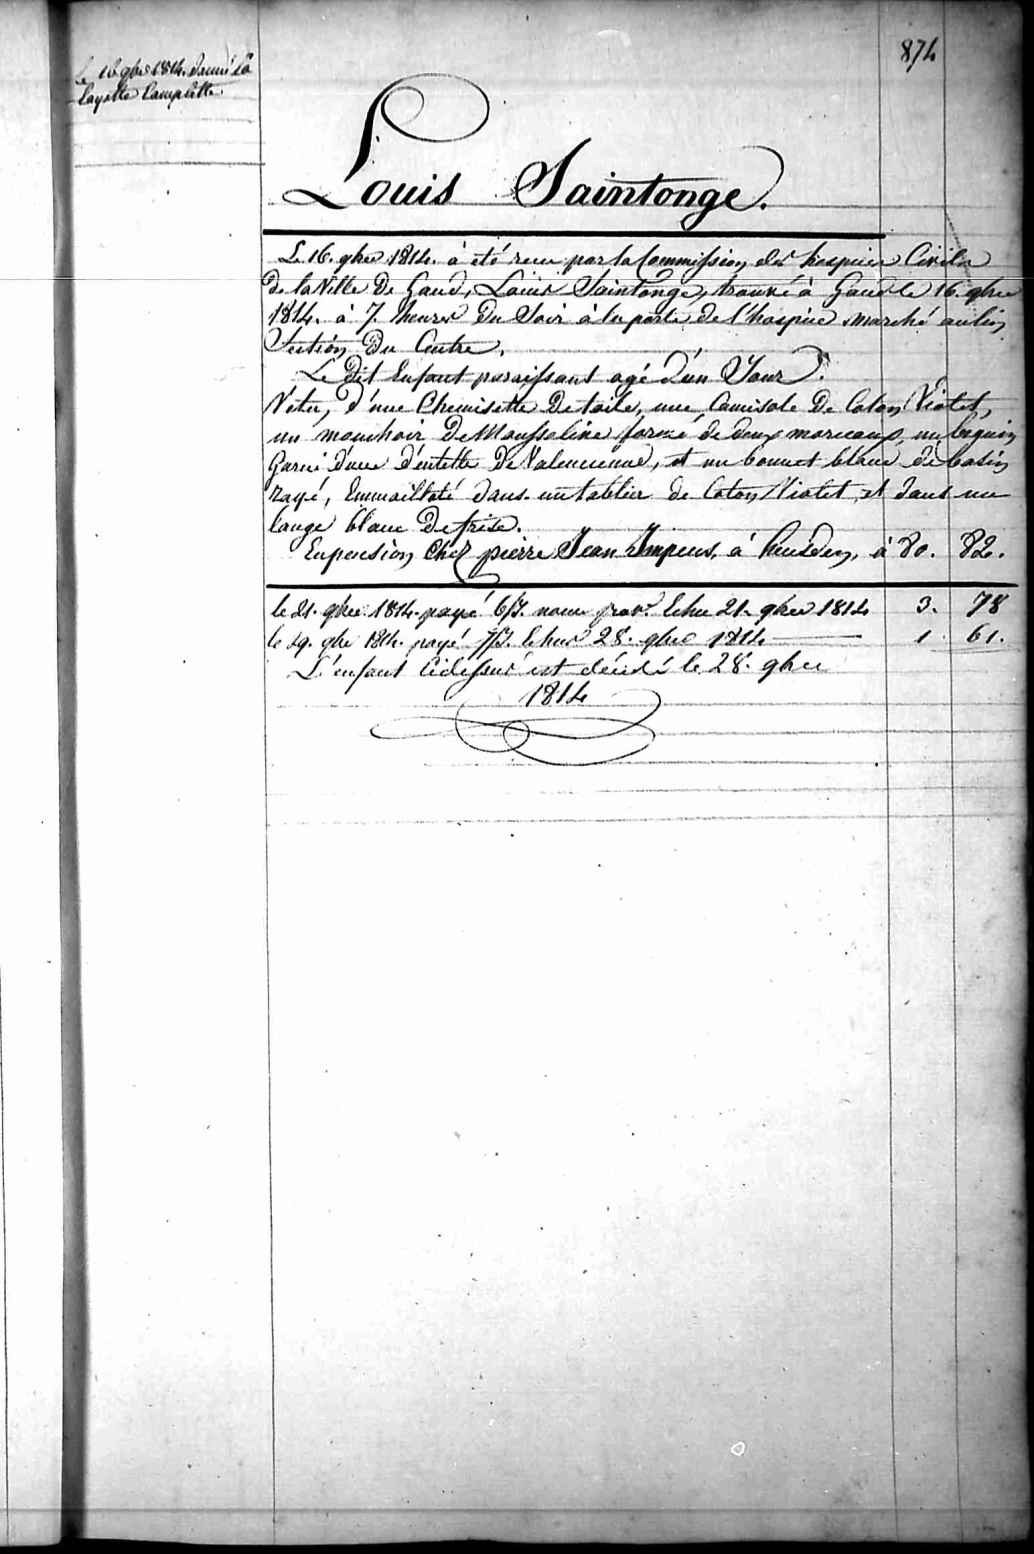 874
Le 16 9bre 1814. donné la
layette Complette.
Louis Saintonge.
Le 16. 9bre 1814. à été recu par la Commission des hospices Civils
De la Ville De Gand, Louis Saintonge, trouvé à Gand le 16. 9bre
1814. à 7. heures Du Soir à la porte de l'hospice marché au lin
Section Du Centre.
Le Dit Enfant paraissant agé d'un Jour.
Vétu, d'une Chemisette De toile, une Camisole De Coton Violet,
un mouchoir De Mousseline formé de deux morceaux, un beguin
Garni d'une d'entelle De Valencienne, et un bonnet blanc de basin
rayé, Emmailloté dans un tablier de Coton Violet, et dans un
lange blanc De frise.
Enpension Chez pierre Jean Impens, à heusden, à 80. 82.
le 21. 9bre 1814. payé 6/J. nour prov. Echu 21. 9bre 1814 3. 78
le 29. 9bre 1814. payé 7/J. Echus 28. 9bre 1814 1. 61.
L'enfant Cidessus est décédé le 28. 9bre
1814